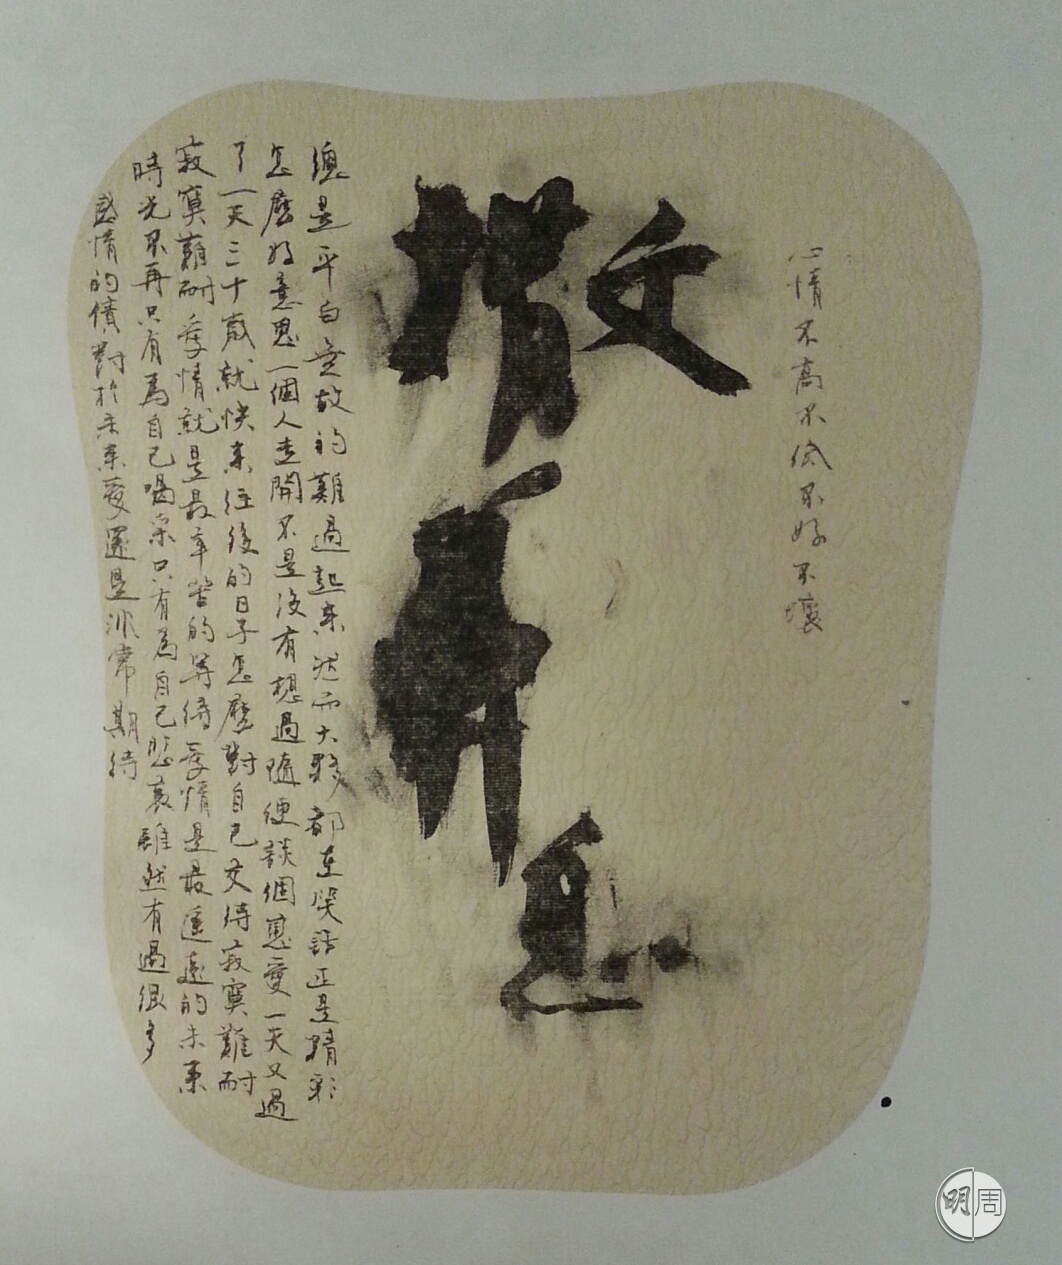 心情不高不低不好不壞
總是平白無故的難過起來然而大夥都在笑話正是精彩
怎麼好意思一個人走開不是沒有想過隨便談個戀愛一天又過
了一天三十歲就快來往後的日子怎麼對自己交待寂寞難耐
寂寞難耐愛情就是最辛苦的等待愛情是最遙遠的未來
時光不再只有為自己喝采只有為自己悲哀雖然有過很多
感情的債對於未來愛還是非常期待
明周